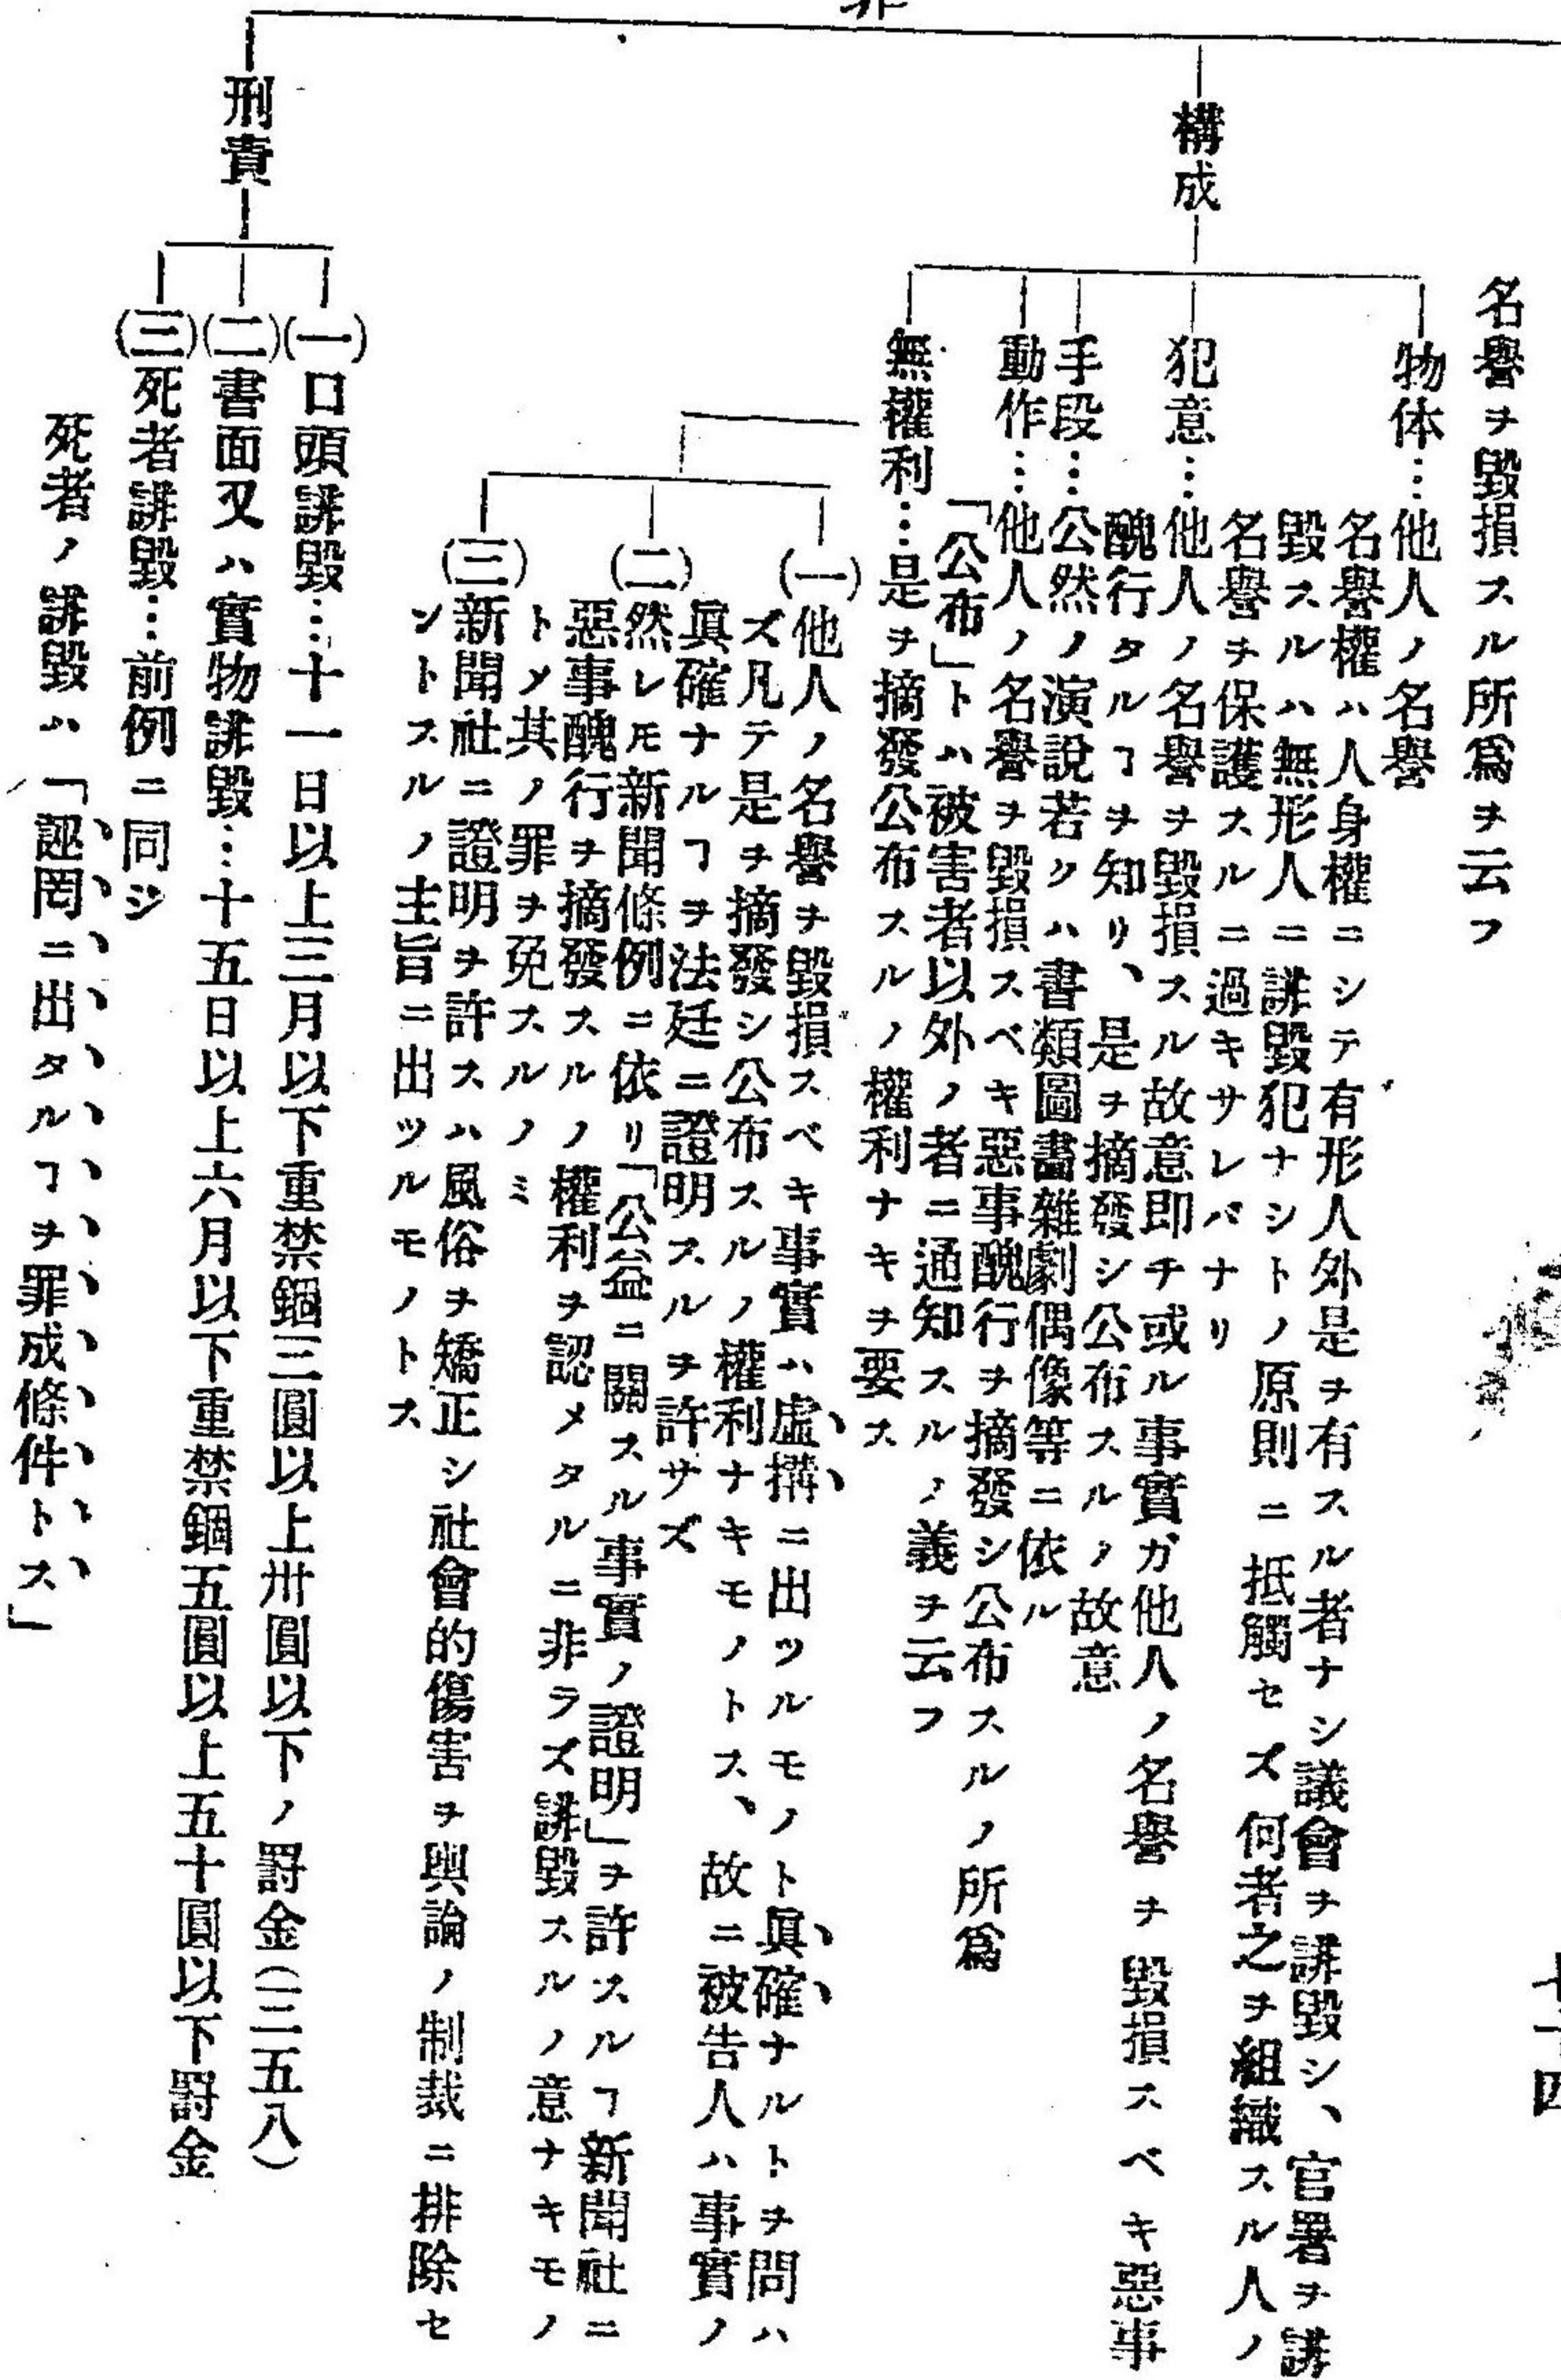 名譽ヲ毀損スル所爲ヲ云フ
構成
物体…他人ノ名譽
名譽權ハ人身權ニシテ有形人外是ヲ有スル者ナシ議會ヲ誹毀シ、官署ヲ誹
毀スルハ無形人ニ誹毀犯ナシトノ原則ニ抵觸セズ何者之ヲ組織スル人ノ
名譽ヲ保護スルニ過キサレバナリ
犯意…他人ノ名譽ヲ毀損スル故意即チ或ル事實ガ他人ノ名譽ヲ毀損スベキ惡事
醜行タルヿヲ知リ、是ヲ摘發シ公布スルノ故意
手段…公然ノ演說若クハ書類圖畵雜劇偶像等ニ依ル
動作…他人ノ名譽ヲ毀損スベキ惡事醜行ヲ摘發シ公布スルノ所爲
「公布」トハ被害者以外ノ者ニ通知スルノ義ヲ云フ
無權利…是ヲ摘發公布スルノ權利ナキヲ要ス
(一)他人ノ名譽ヲ毀損スベキ事實ハ虛搆ニ出ツルモノト眞確ナルトヲ問ハ
ズ凡テ是ヲ摘發シ公布スルノ權利ナキモノトス、故ニ被告人ハ事實ノ
眞確ナルヿヲ法廷ニ證明スルヲ許サズ
(二)然レ𪜈新聞條例ニ依リ「公益ニ關スル事實ノ證明」ヲ許スルヿ新聞社ニ
惡事醜行ヲ摘發スルノ權利ヲ認メタルニ非ラズ誹毀スルノ意ナキモノ
トメ其ノ罪ヲ免スルノミ
(三)新聞社ニ證明ヲ許スハ風俗ヲ矯正シ社會的傷害ヲ輿論ノ制裁ニ排除セ
ントスルノ主旨ニ出ツルモノトス
刑責
(一)口頭誹毀…十一日以上三月以下重禁錮三圓以上卅圓以下ノ罰金(三五八)
(二)書面又ハ實物誹毀…十五日以上六月以下重禁錮五圓以上五十圓以下罰金
(三)死者誹毀…前例ニ同ジ
死者ノ誹毀ハ「誣罔ニ出タルヿヲ罪成條件トス」